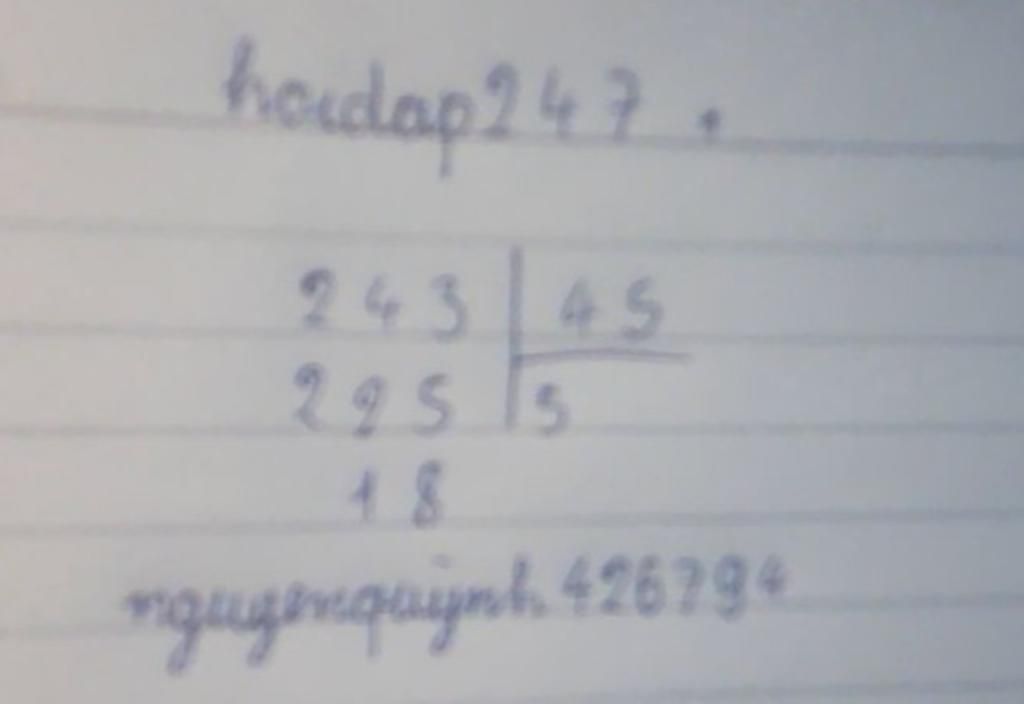 hoidap247.
243 45
225 5
18
nguyenquynh426794